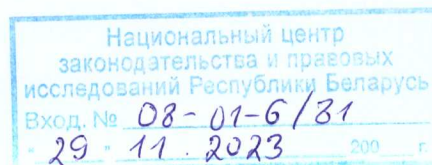 Национальный центр
законодательства и правовых
исследований Республики Беларусь
Вход. № 08-01-6/31
" 29 " 11. 2023 200 г.